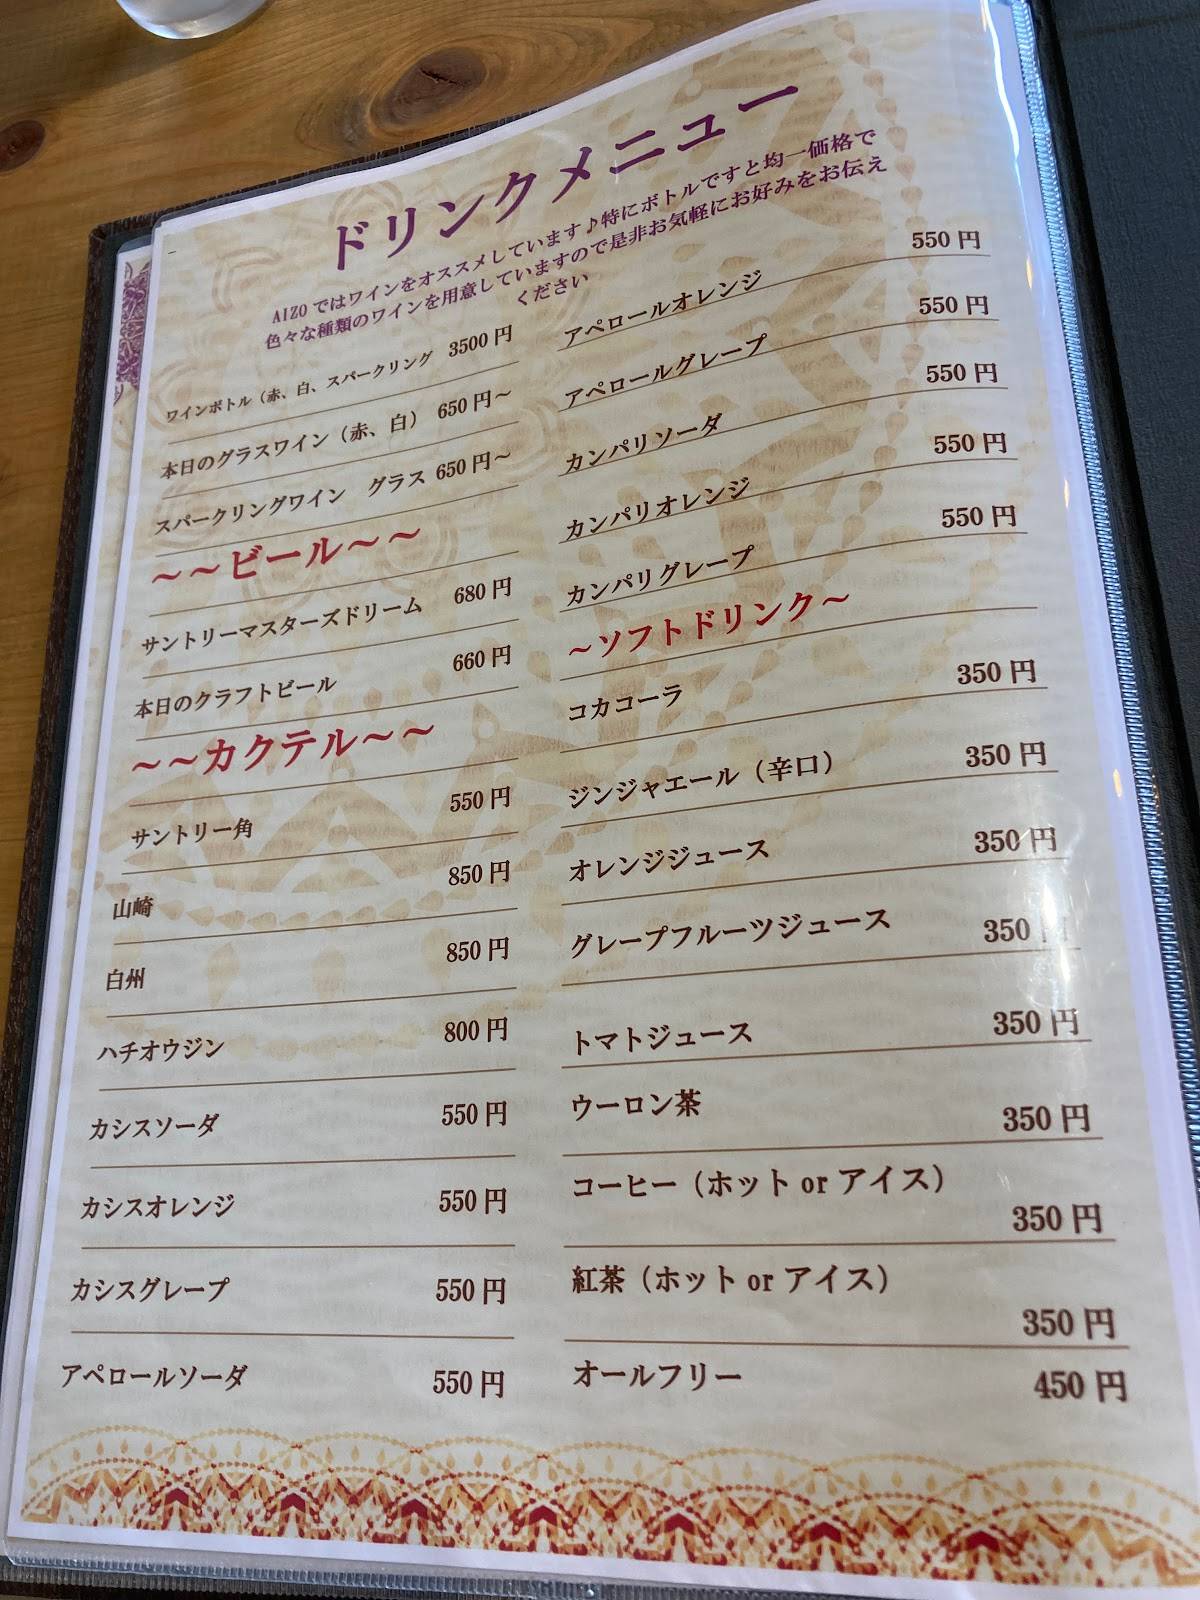 ドリンクメニュー
AIZOではワインをオススメしています♪特にボトルですと均一価格で
色々な種類のワインを用意していますので是非お気軽にお好みをお伝え
ください
ワインボトル（赤、白、スパークリング 3500円
本日のグラスワイン（赤、白） 650円～
スパークリングワイン　グラス 650円～
～～ビール～～
サントリーマスターズドリーム 680円
本日のクラフトビール 660円
～～カクテル～～
サントリー角 550円
山崎 850円
白州 850円
ハチオウジン 800円
カシスソーダ 550円
カシスオレンジ 550円
カシスグレープ 550円
アペロールソーダ 550円
アペロールオレンジ 550円
アペロールグレープ 550円
カンパリソーダ 550円
カンパリオレンジ 550円
カンパリグレープ 550円
～ソフトドリンク～
コカコーラ 350円
ジンジャエール（辛口） 350円
オレンジジュース 350円
グレープフルーツジュース 350円
トマトジュース 350円
ウーロン茶 350円
コーヒー（ホット or アイス）
350円
紅茶（ホット or アイス）
350円
オールフリー 450円